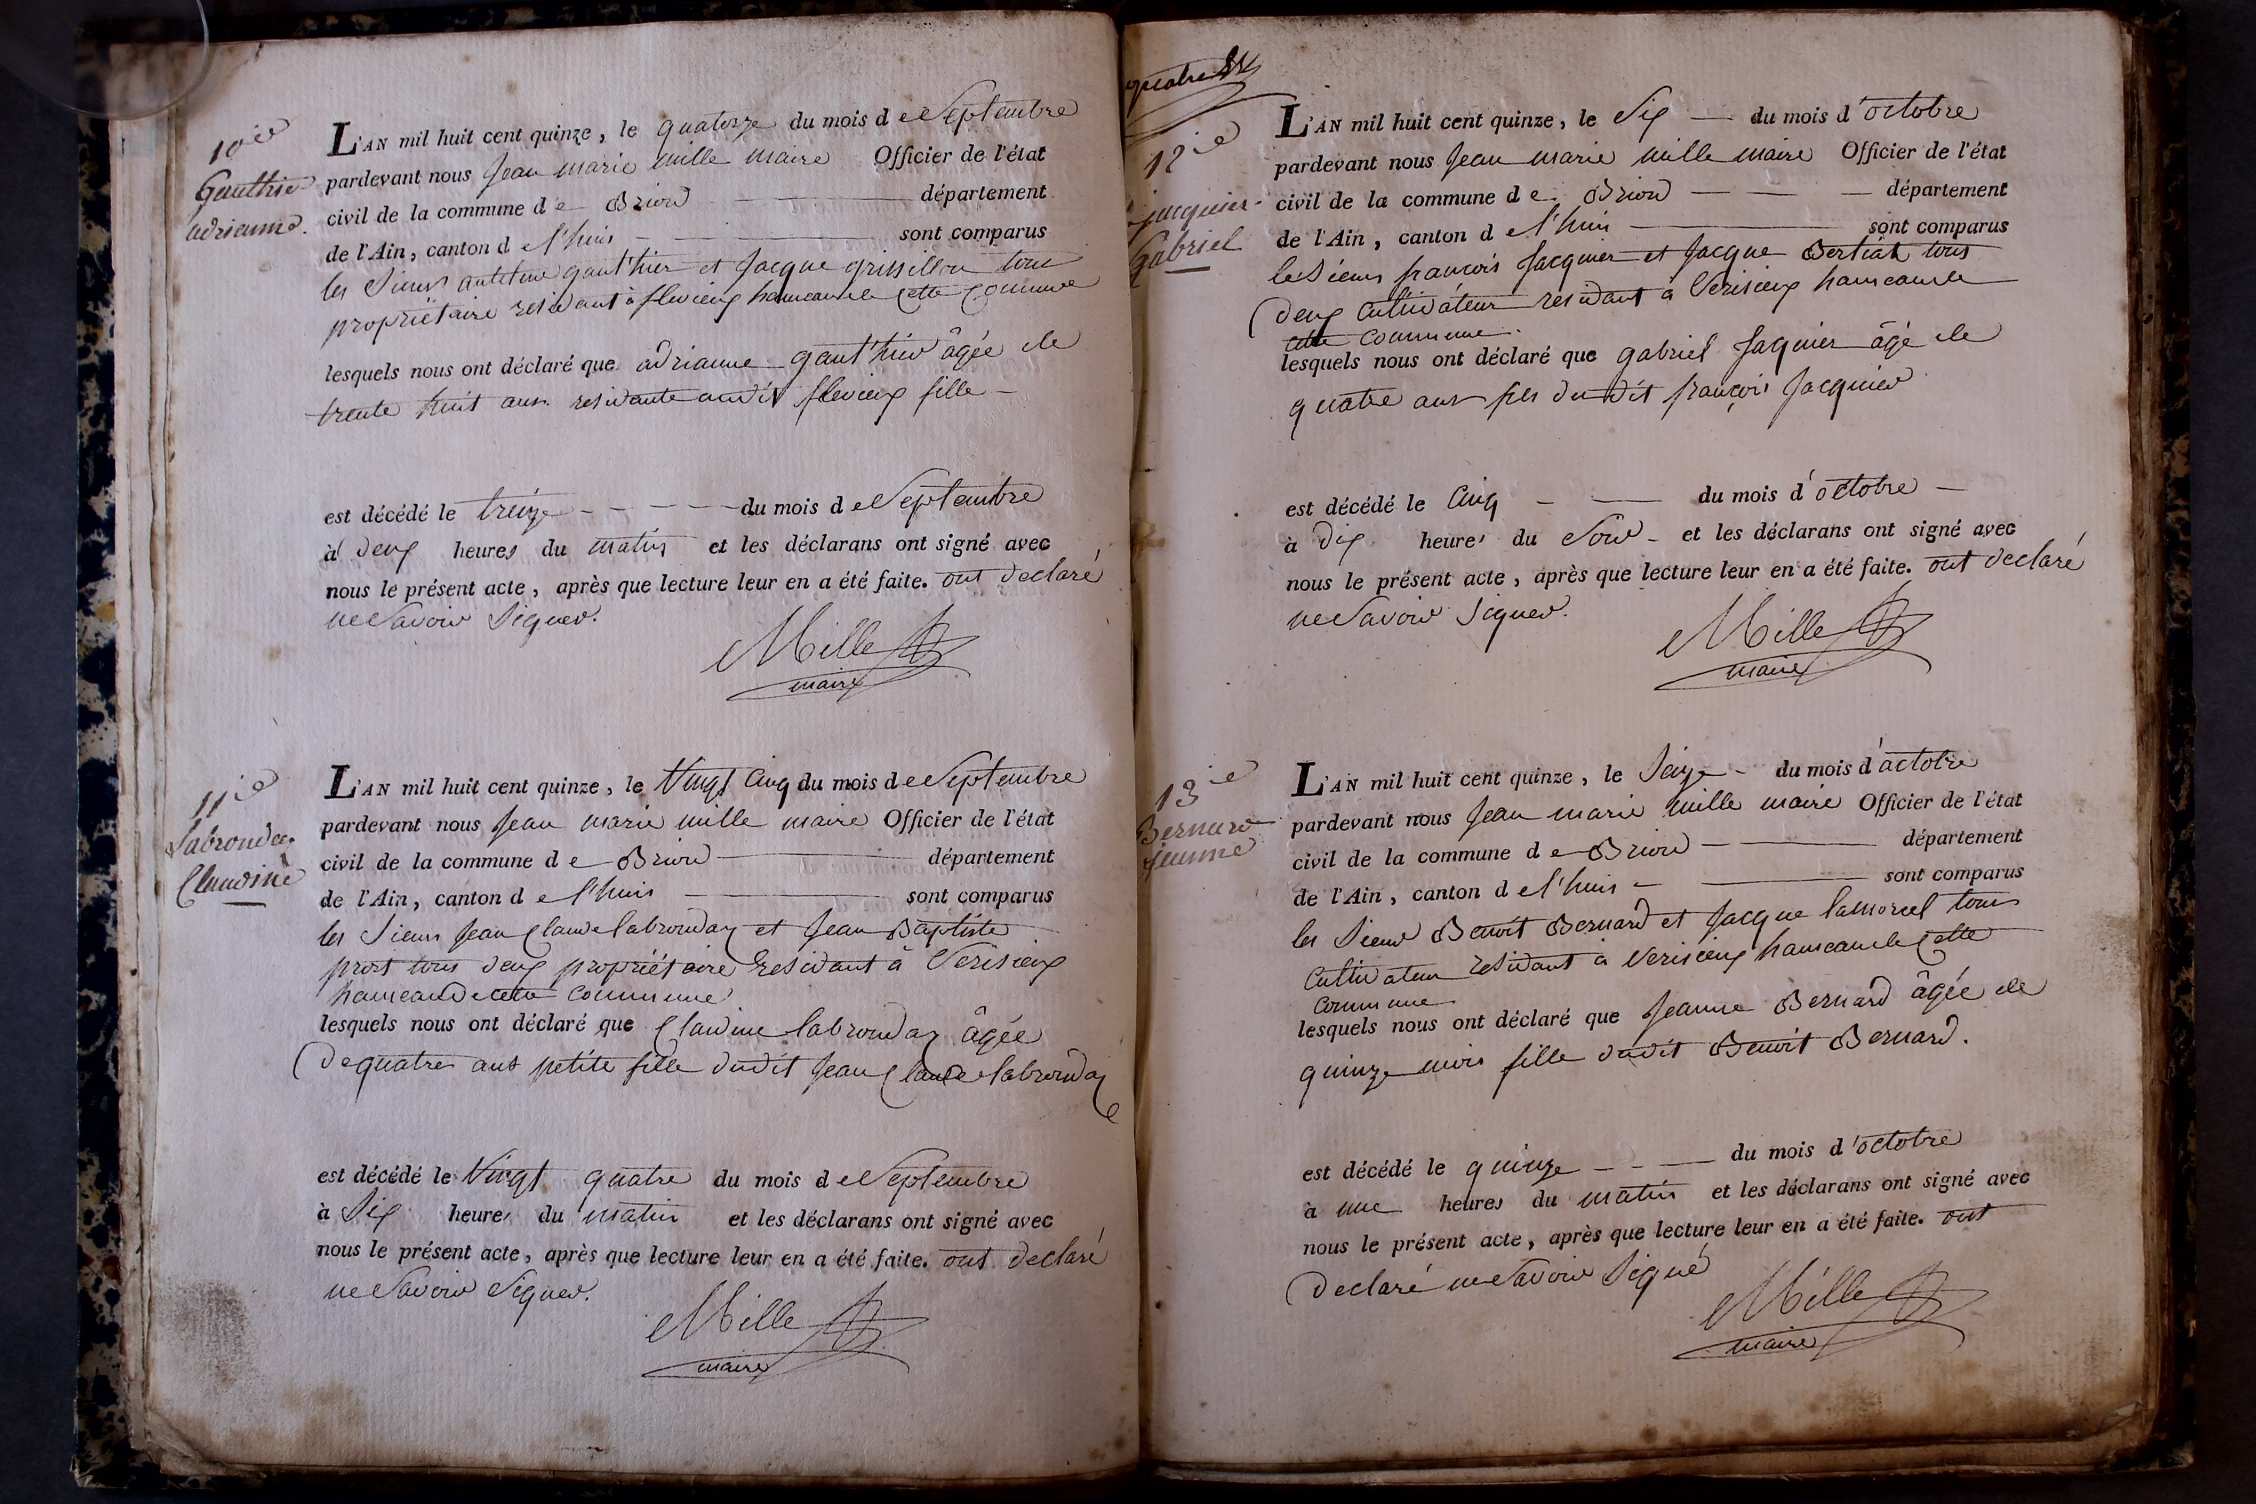 10ie
Gauthier
adrianne.
L'AN mil huit cent quinze, le quatorze du mois de Septembre
pardevant nous Jean marie mille maire Officier de l'état
civil de la commune de Briord département
de l'Ain, canton de l'huis sont comparus
les Sieurs gauthier et Jacque grissillon tous
propriétaire residant à flevieux hameau de cette Commune
lesquels nous ont déclaré que adrianne gauthier âgée de
trente huit ans residante audit flevieux fille
est décédé le treize du mois de Septembre
à deux heures du matin et les déclarans ont signé avec
nous le présent acte, après que lecture leur en a été faite. ont declaré
ne Savoir Signer.
Mille
maire
11ie
Labronday
Claudine
L'AN mil huit cent quinze, le Vingt Cinq du mois de Septembre
pardevant nous Jean marie mille maire Officier de l'état
civil de la commune de Briord département
de l'Ain, canton de l'huis sont comparus
les Sieurs Jean Claude labronday et Jean Baptiste
prost tous deux propriétaire residant à Verisieux
hameau de cette commune
lesquels nous ont déclaré que Claudine labronday âgée
de quatre ans petite fille dudit Jean Claude labronday
est décédé le Vingt quatre du mois de Septembre
à Six heures du matin et les déclarans ont signé avec
nous le présent acte, après que lecture leur en a été faite. ont declaré
ne Savoir Signer.
Mille
maire
quatre
12ie
jacquier
Gabriel
L'AN mil huit cent quinze, le Six du mois d'octobre
pardevant nous Jean marie mille maire Officier de l'état
civil de la commune de Briord département
de l'Ain, canton de l'huis sont comparus
les Sieurs françois Jacquier et Jacque Bertiat tous
deux Cultivateur residant à Verisieux hameau de
cette commune.
lesquels nous ont déclaré que gabriel Jaquier âgé de
quatre ans fils dudit françois Jacquier
est décédé le Cinq du mois d'octobre
à dix heures du Soir et les déclarans ont signé avec
nous le présent acte, après que lecture leur en a été faite. ont declaré
ne Savoir Signer.
Mille
maire
13ie
Bernard
jeanne
L'AN mil huit cent quinze, le Seize du mois d'actobre
pardevant nous Jean marie mille maire Officier de l'état
civil de la commune de Briord département
de l'Ain, canton de l'huis sont comparus
les Sieur Benoit Bernard et Jacque lamorcel tous
Cultivateur residant à Verisieux hameau de Cette
commune
lesquels nous ont déclaré que Jeanne Bernard âgée de
quinze mois fille dudit Benoit Bernard.
est décédé le quinze du mois d'octobre
à une heures du matin et les déclarans ont signé avec
nous le présent acte, après que lecture leur en a été faite. ont
declaré ne Savoir Signé
Mille
maire